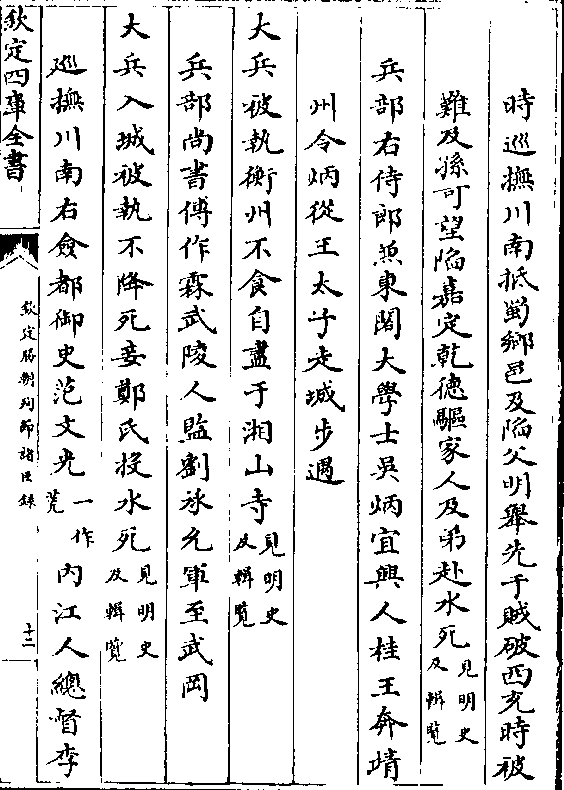 時巡撫川南抵蜀鄉邑及陷父明舉先于賊破西充時被
難及孫可望陷嘉定乾德驅家人及弟赴水死見明史及輯覽
兵部右侍郎兼東閣大學士吳炳宜興人桂王奔靖
州令炳從王太子走城步遇
大兵被執衡州不食自盡于湘山寺見明史及輯覽
兵部尚書傅作霖武陵人監劉承允軍至武岡
大兵入城被執不降死妾鄭氏投水死見明史及輯覽
巡撫川南右僉都御史范文光一作芫內江人總督李
欽定四庫全書
欽定勝朝殉節諸臣錄
十二